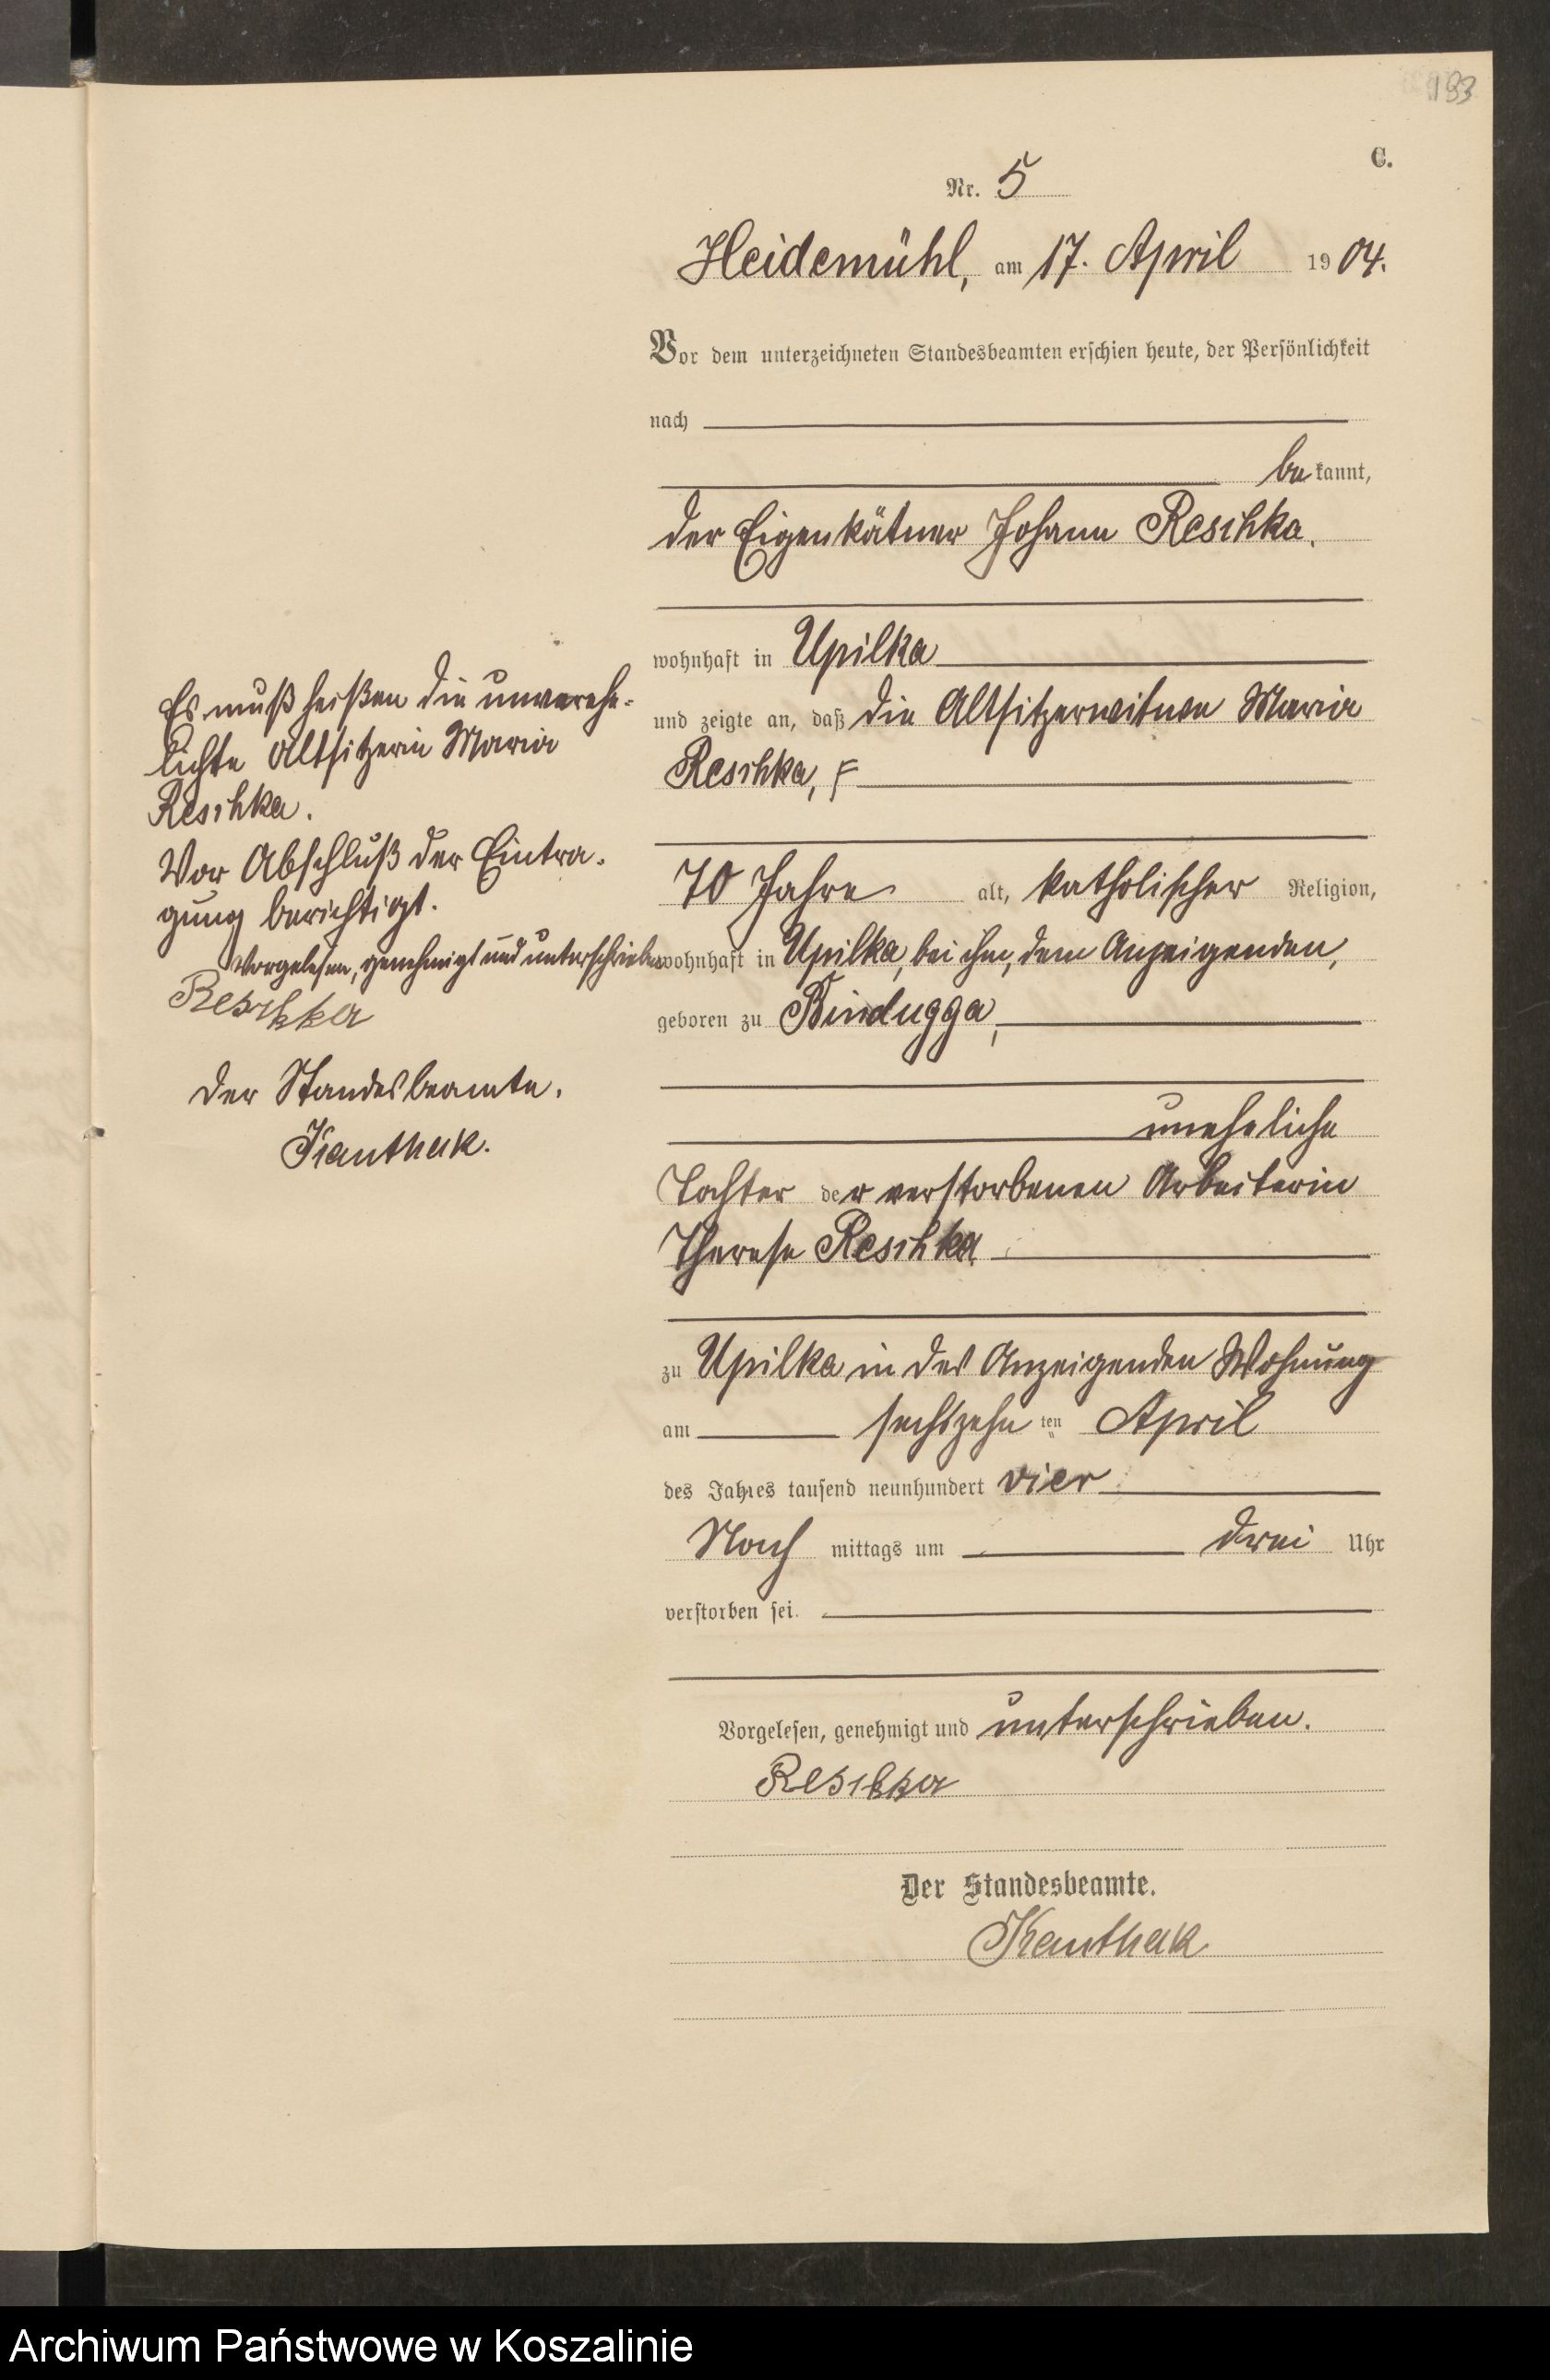 193
C.
Nr. 5
Heidemühl, am 17. April 1904.
Vor dem unterzeichneten Standesbeamten erschien heute, der Persönlichkeit
nach
bekannt,
der Eigenkätner Johann Reschka.
wohnhaft in Upilka
und zeigte an, daß die Altsitzerwitwe Maria
Reschka, F
70 Jahre alt, katholischer Religion,
wohnhaft in Upilka, bei ihm, dem Anzeigenden,
geboren zu Bindugga,
uneheliche
Tochter der verstorbenen Arbeiterin
Therese Reschka
zu Upilka in des Anzeigenden Wohnung
am sechszehnten April
des Jahres tausend neunhundert vier
Nachmittags um drei Uhr
verstorben sei.
Vorgelesen, genehmigt und unterschrieben.
Reschka
Der Standesbeamte.
Kauthak
Es muß heißen die unverehe-
lichte Altsitzerin Maria
Reschka.
Vor Abschluß der Eintra-
gung berichtigt.
Vorgelesen, genehmigt und unterschrieben
Reschka
Der Standesbeamte.
Kauthak.
Archiwum Państwowe w Koszalinie